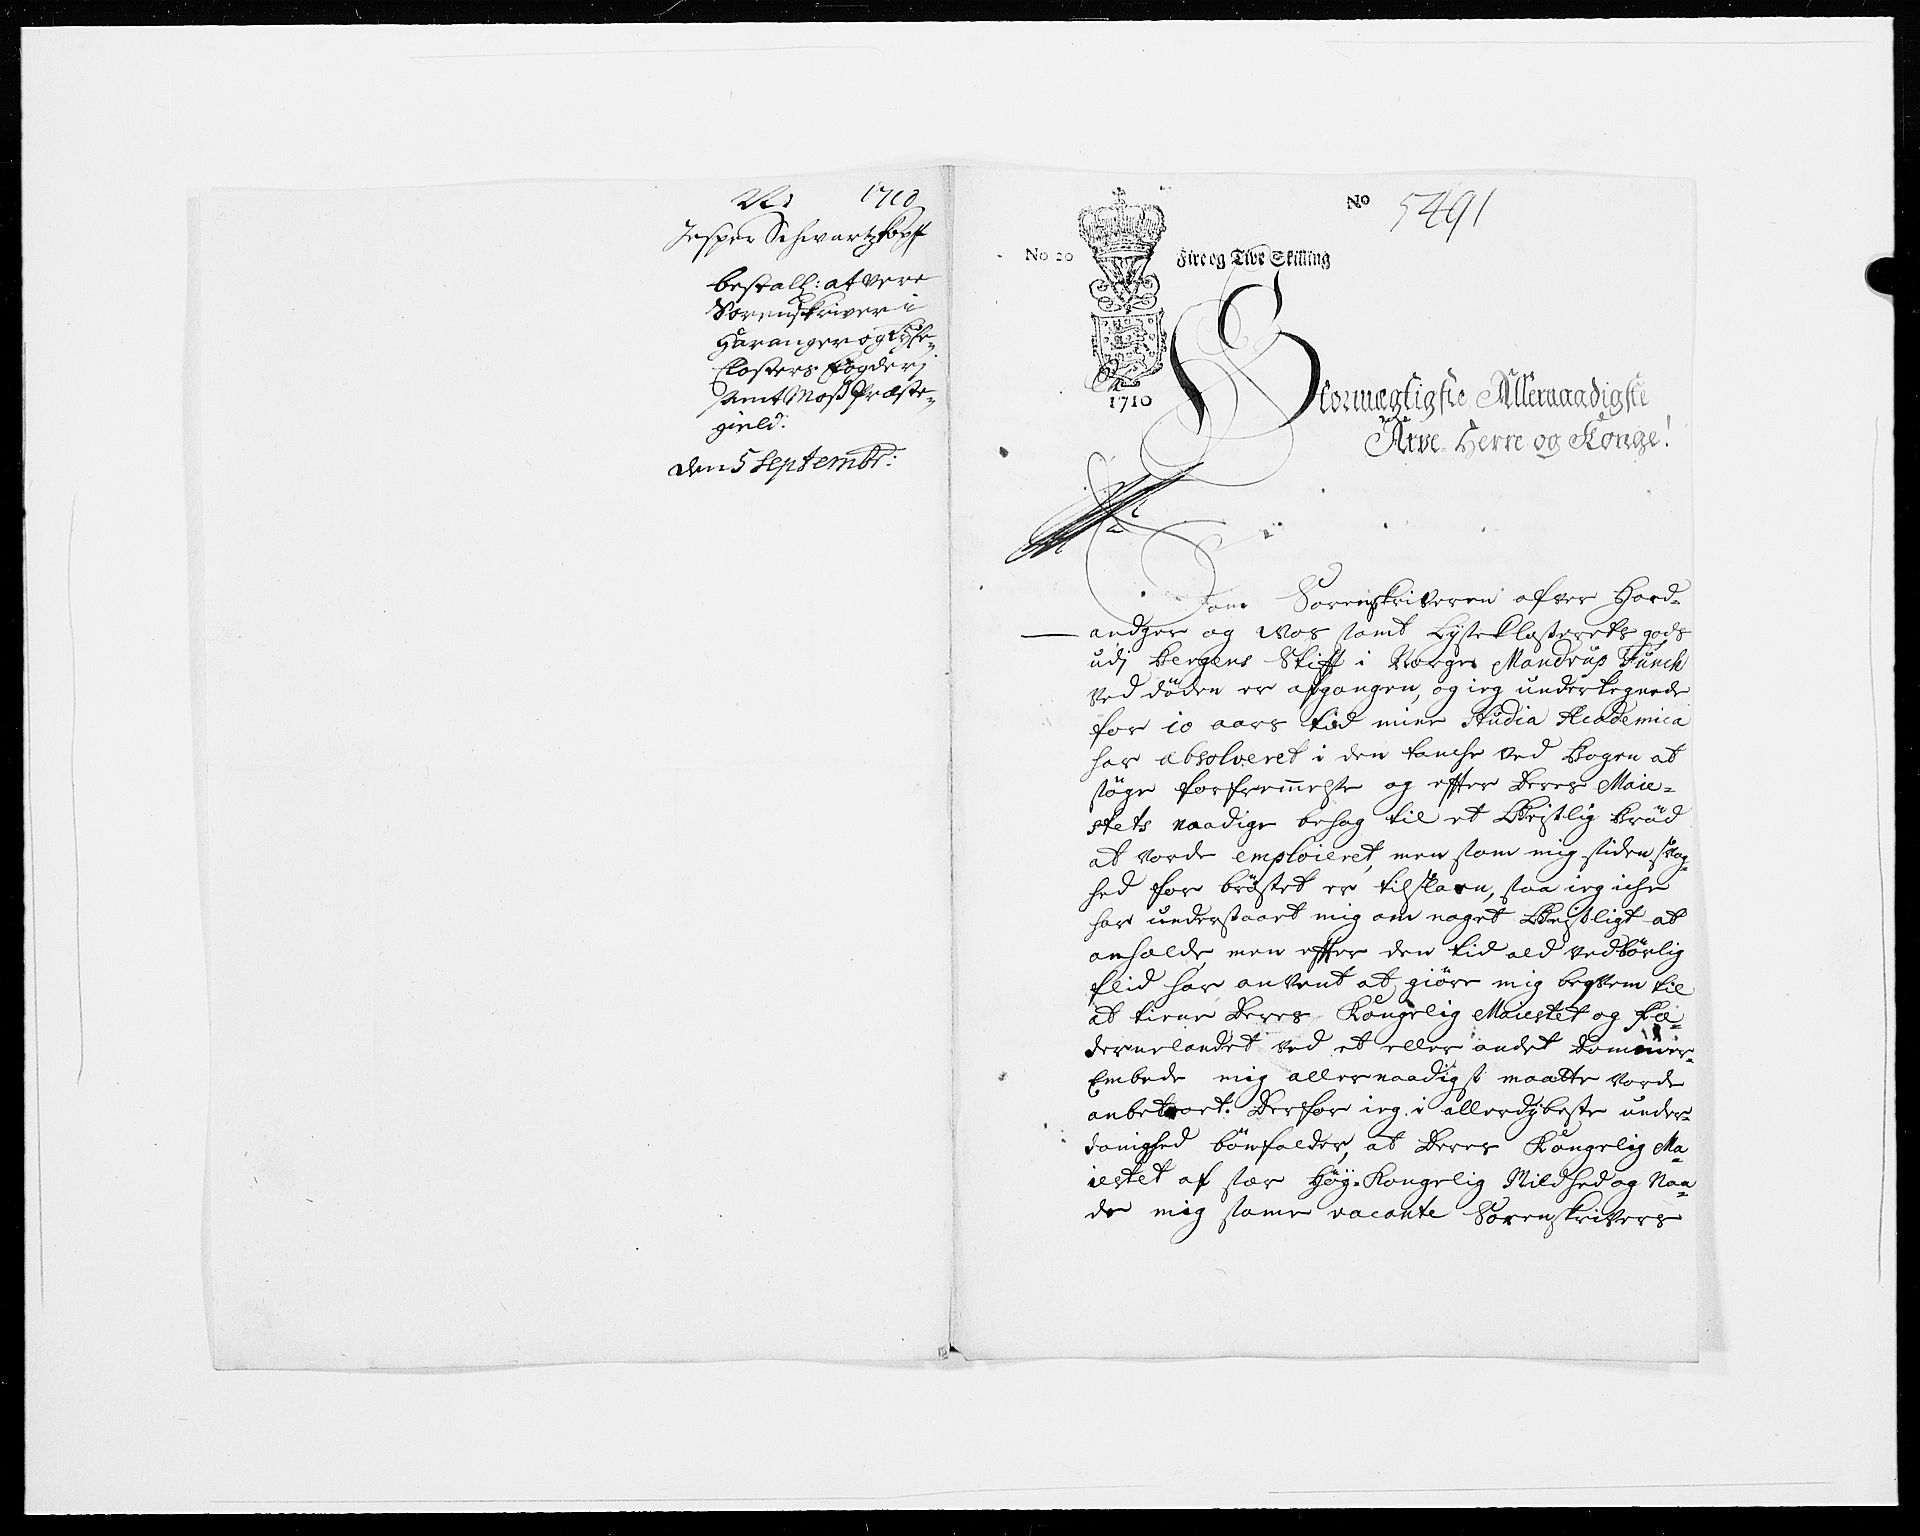 1710
Jesper Schwartzkopf
bestall: at vere
Sorenskriver i
Haranger og Lyse-
Closters fogderj
samt Moss Præste-
gield:
den 5 Septembr:
No 5491
No 20 Fire og Tive Skilling
1710
Stormægtigste Allernaadigste
Arve-Herre og Konge!
Som Sorenskriveren ofver Hard-
andger og Wos samt Lyseklosterets gods
udj Bergens Stifft i Norge Mandrup Funch
ved döden er afgangen, og ieg underteegnede
for 10 aars tid mine Studia Academica
har absolveret i den tanche ved Bogen at
söge forfremmelse og effter Deres Maie-
stets naadige behag til et Geistlig bröd
at vorde emploieret, men som mig siden svag-
hed for bröstet er tilslaaen, saa ieg iche
har understaaet mig om noget Geistligt at
anholde, men effter den tid ald vedbörlig
flid har anvent at giöre mig beqvem til
at tiene Deres Kongelig Maiestet og Fæ-
dernelandet ved et eller andet Dommer-
Embede mig allernaadigst maatte vorde
anbetroet. Derfor ieg i allerdybeste under-
danighed bönfalder, at Deres Kongelig Ma-
iestet af sær Höy-Kongelig Mildhed og Naa-
de mig samme vacante Sorenskrivers